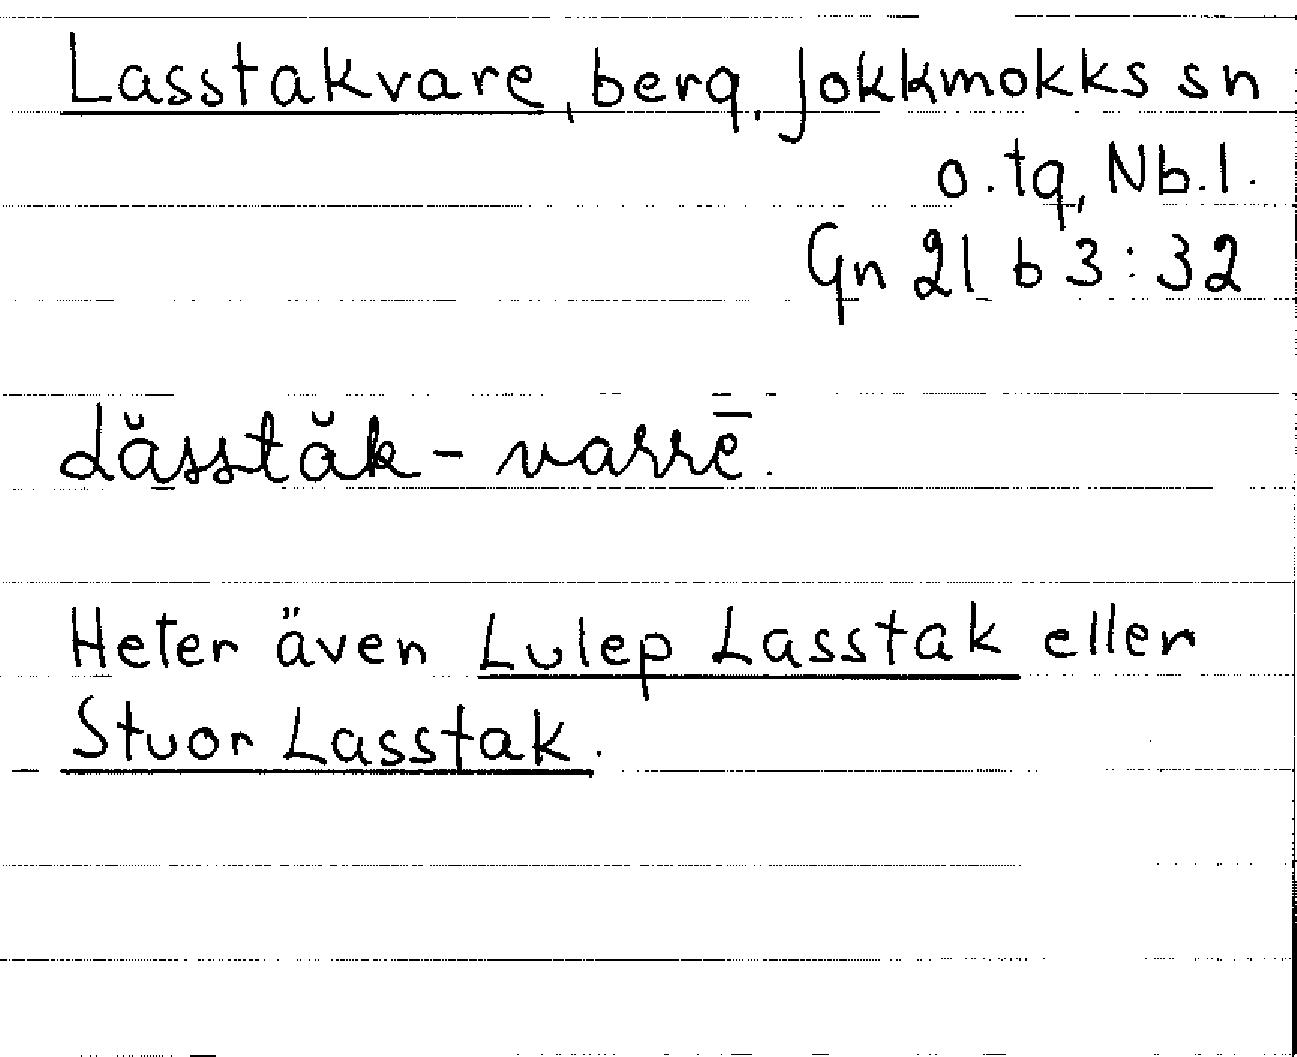 Lasstakvare, berg. Jokkmokks sn
o. tg, Nb. l.
Gn 21 b 3:32
lăsstăk-varrē.
Heter även Lulep Lasstak eller
Stuor Lasstak.